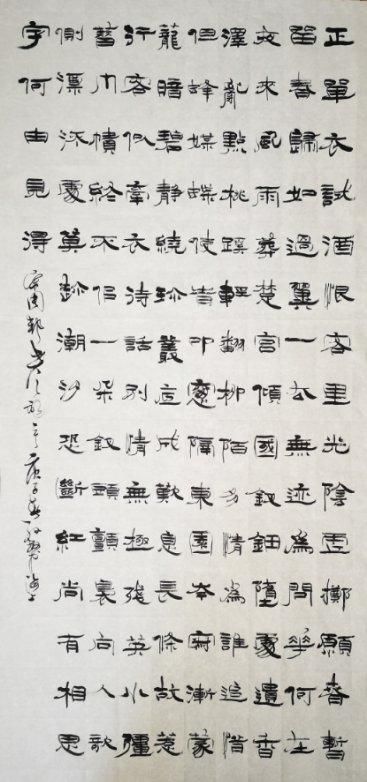 正單衣試酒恨客里光陰虛擲願春暫
留春歸如過翼一去無迹為問花何在
夜來風雨葬楚宮傾國釵鈿墮處遺香
澤亂點桃蹊輕翻柳陌多情為誰追惜
但蜂媒蝶使皆叩窗隔東園岑寂漸蒙
籠暗碧靜繞珍叢底成歎息長條故惹
行客似牽衣待話別情無極殘英小強
簪巾幘終不似一朵釵頭顫裊向人欹
側漂流處莫趁潮汐恐斷紅尚有相思
字何由見得
宋周邦彥 庚子春